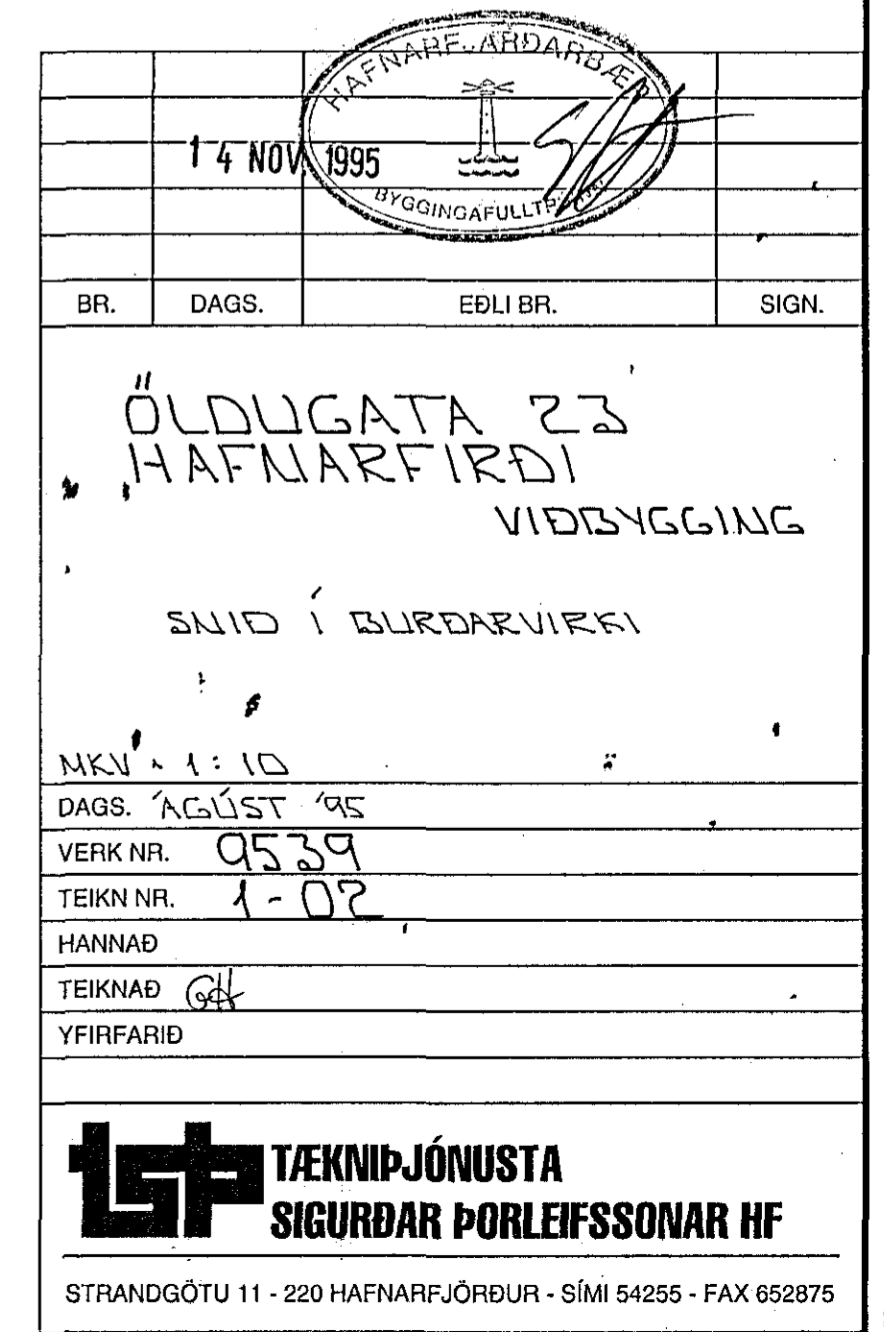 HAFNARFJARÐARBÆR
14 NOV 1995
BYGGINGAFULLTR
BR. DAGS. EÐLI BR. SIGN.
ÖLDUGATA 23
HAFNARFIRÐI
VIÐBYGGING
SNIÐ Í BURÐARVIRKI
MKV. 1:10
DAGS. ÁGÚST '95
VERK NR. 9539
TEIKN NR. 1-02
HANNAÐ
TEIKNAÐ GH
YFIRFARIÐ
tsþ TÆKNIÞJÓNUSTA
SIGURÐAR ÞORLEIFSSONAR HF
STRANDGÖTU 11 - 220 HAFNARFJÖRÐUR - SÍMI 54255 - FAX 652875